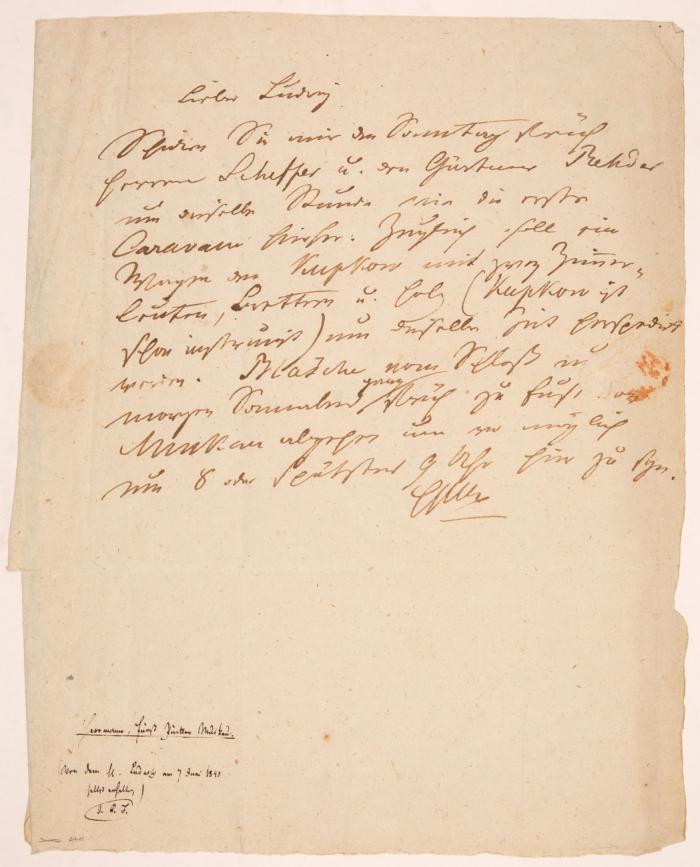 Lieber Ludwig
Schicken Sie mir den Sonntag früh
Herrn Scheffer u. den Gärtner Rehder
um dieselbe Stunde wie die erste
Caravane hierher. Zugleich soll ein
Wagen den Kupkow mit zwey Zimmer-
leuten, Brettern u. Holz (Kupkow ist
schon instruirt) um dieselbe Zeit herspedirt
werden. vom Schloß
morgen Sonnabend ganz früh zu Fuß von
Muskau abgehen um wo möglich
um 8 oder spätstens 9 Uhr hier zu seyn.
Herrmann, Fürst Pückler Muskau.
(Von dem H. Ludwig am 7 Juni 1841
selbst erhalten)